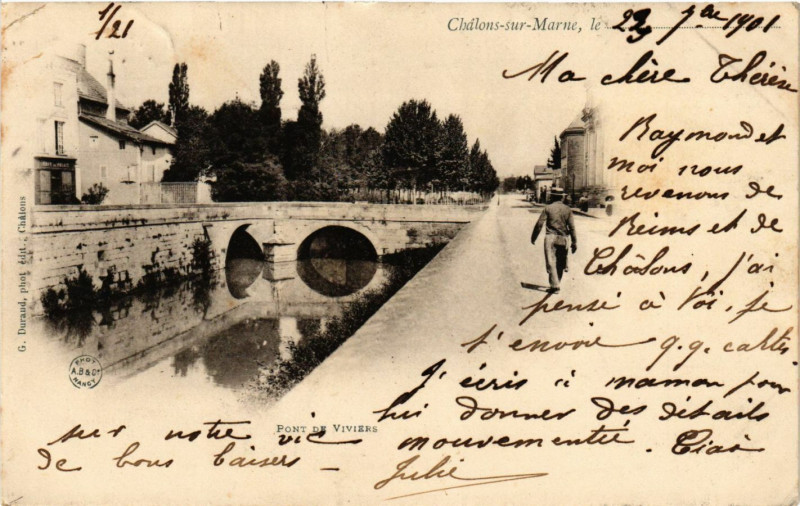 1/21
Châlons-sur-Marne, le 22 7bre 1901
Ma chère Thérèse
Raymond et
moi nous
revenons de
Reims et de
Châlons, j'ai
pensé à toi, je
t'envoie q.q. cartes
J'écris à maman pour
lui donner des détails
sur notre vie mouvementée.
de bons baisers – Julie
PONT DE VIVIERS
G. Durand, phot édit., Châlons
PHOT
A.B & Cie
NANCY